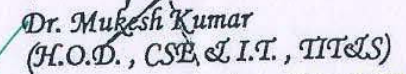 Dr. Mukesh Kumar
(H.O.D. , CSE & I.T. , TIT&S)